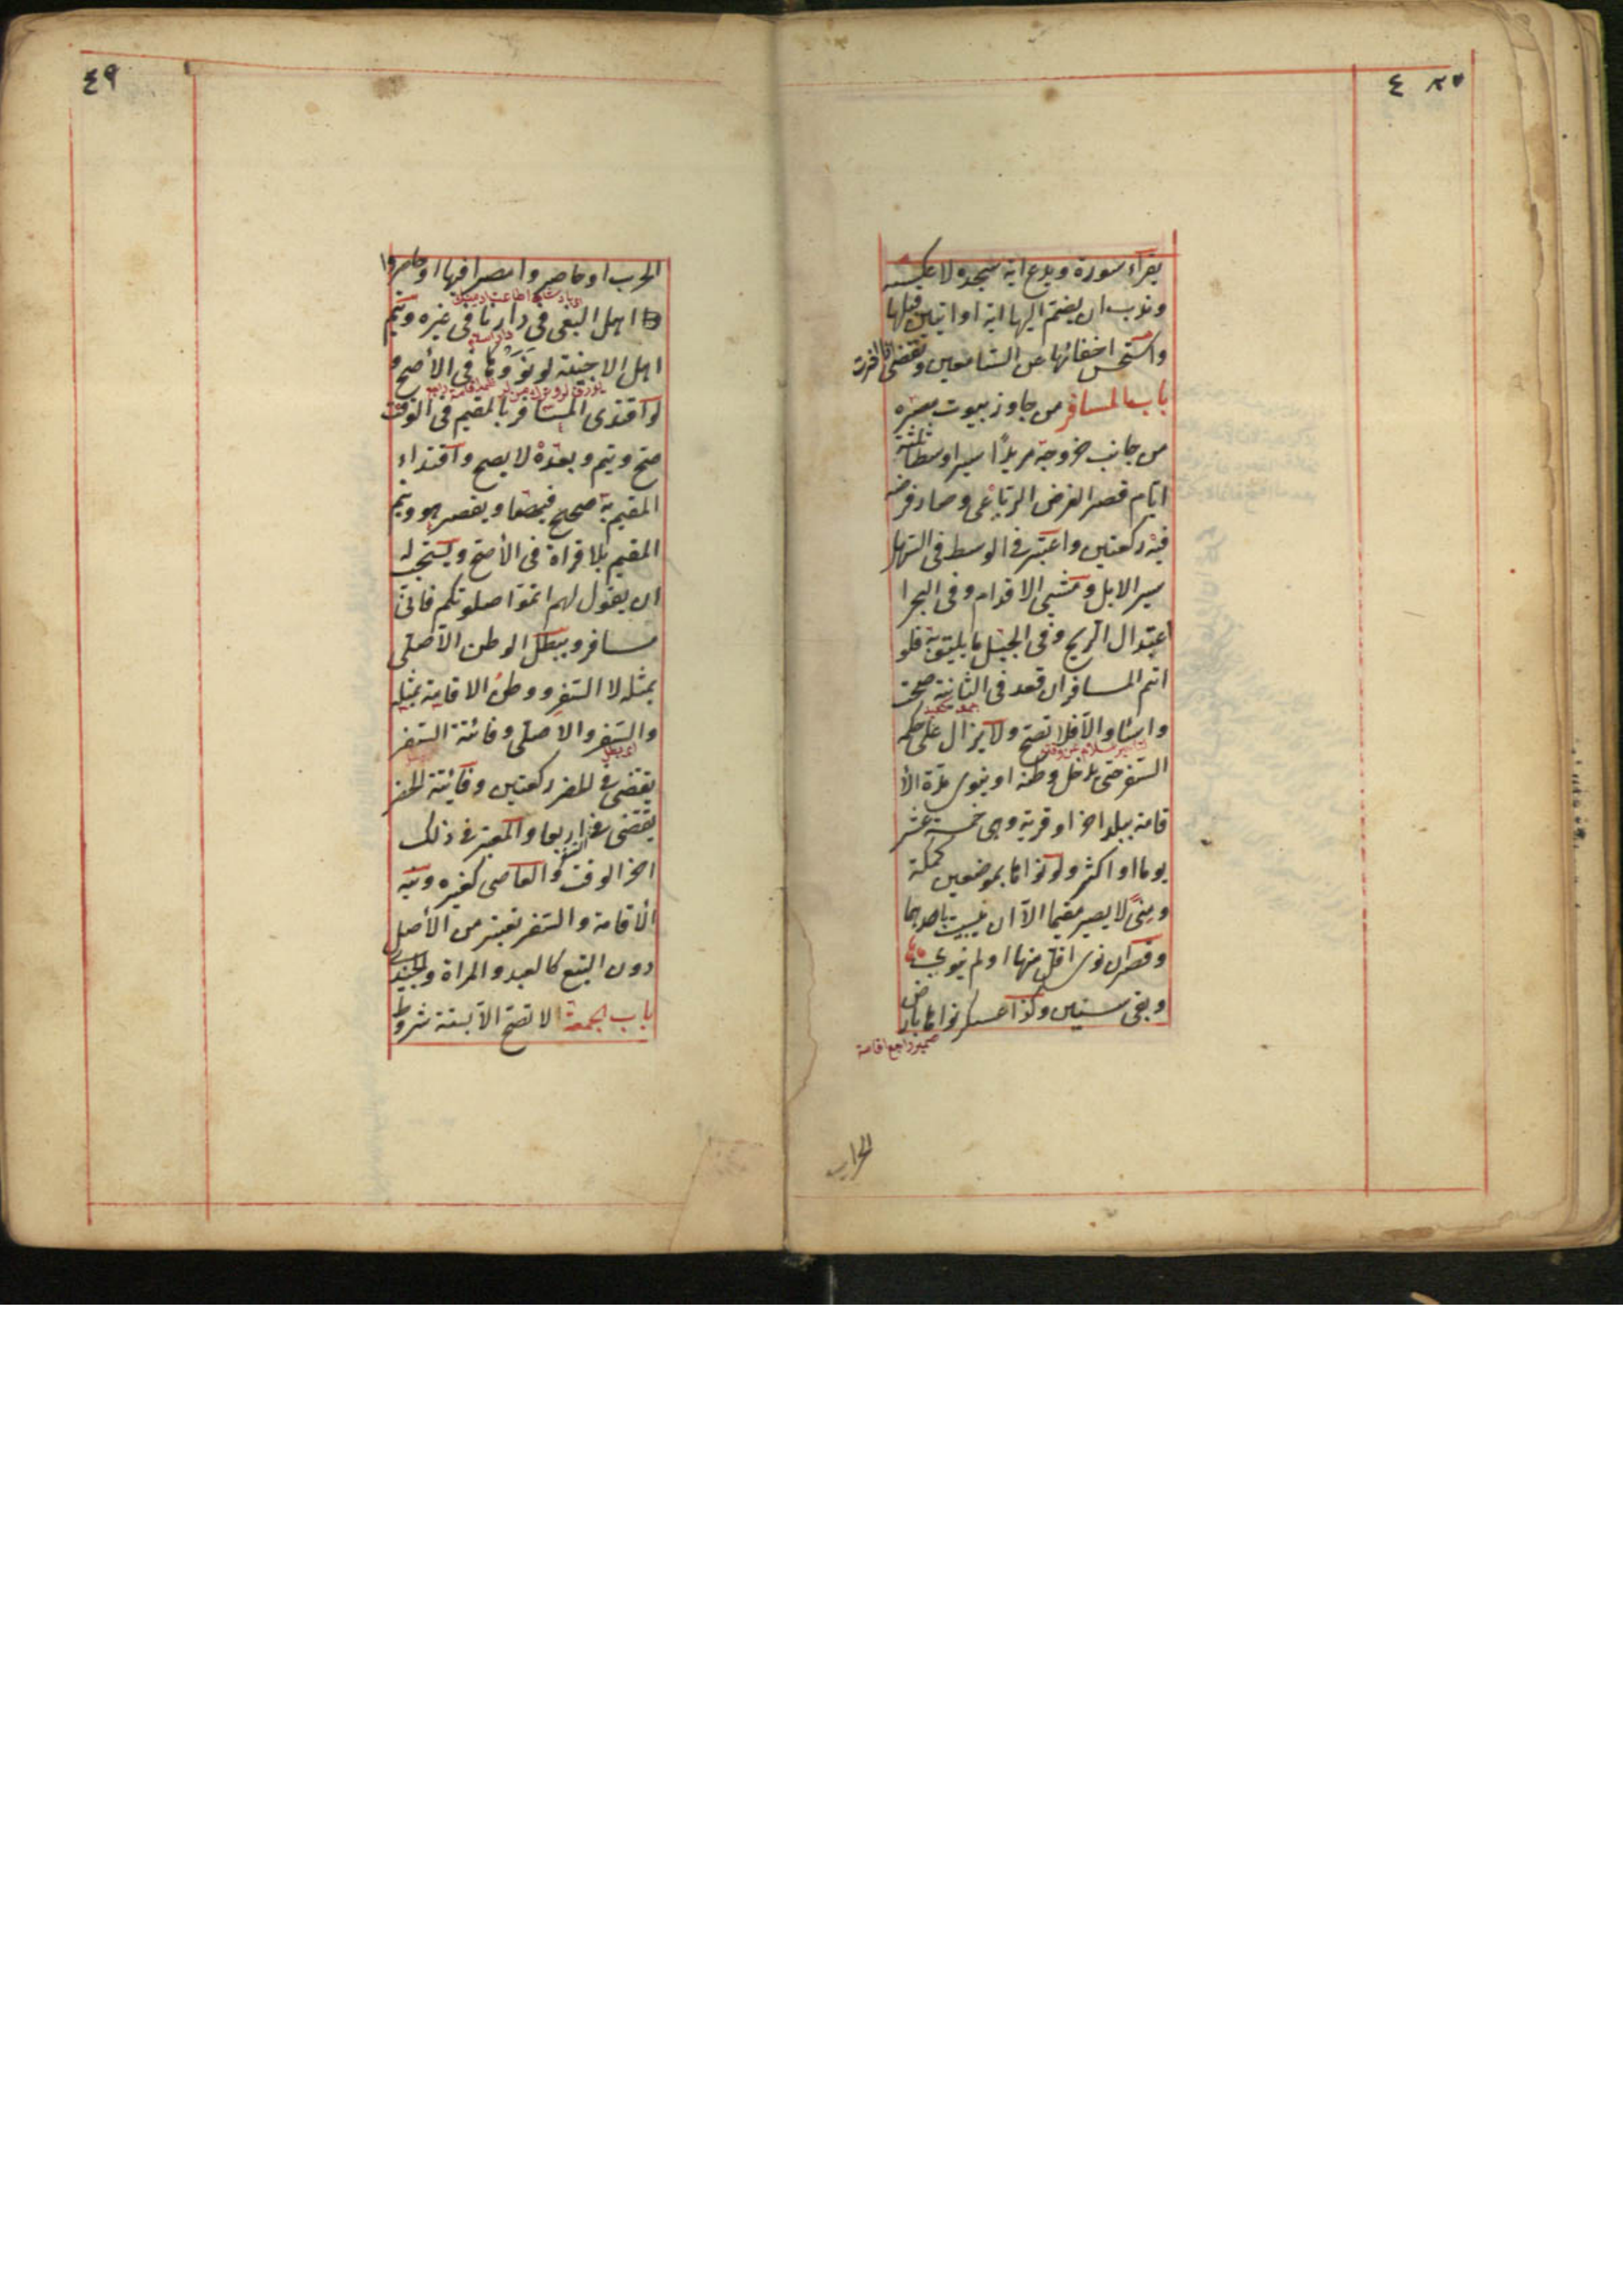 ٤
يقرأ سورة ويدع اية سجدة ولا عكسه
وندب ان يضم اليها اية او ايتين قبلها
واستحسن اخفائها عن السامعين وتقضى
باب المسافر من جاوز بيوت مصره
من جانب خروجه مريدًا سيرا وسطا ثلثة
ايام قصر الفرض الرباعى وصار فرضه
فيه ركعتين واعتبر فى الوسط فى السهل
سير الابل ومشى الاقدام وفى البحر ا
عتدال الريح وفى الجبل ما يليق به فلو
اتم المسافر ان قعد فى الثانية صحت
واساء والا فلا تصح ولا يزال على حكم
السفر حتى يدخل وطنه او ينوى مدة الا
قامة ببلد اخر او قرية وهى خمسة عشر
يوما او اكثر ولو نواها بموضعين كمكة
ومنًى لا يصير مقيما الا ان يبيت باحدهما
وقصر ان نوى اقل منها او لم ينوى
وبقى سنين وكذا عسكر نواها بارض
ضمير راجع اقامة
الحرب
٤٩
الحرب او حاصروا مصرا فيها او حاصروا
اهل البغى فى دارنا فى غيره ويتم
دار اسلام
اهل الاخبية لو نووها فى الأصح و
لو اقتدى المسافر بالمقيم فى الوقت
صح ويتم وبعده لا يصح واقتداء
المقيم به صحيح فيهما ويقصر هو ويتم
المقيم بلا قراة فى الأصح ويستحب له
ان يقول لهم اتموا صلوتكم فانى
مسافر ويبطل الوطن الاصلى
بمثله لا السفر ووطن الاقامة بمثله
والسفر والاصلى وفائتة السفر
يقضى فى الحضر ركعتين وفايتة الحضر
يقضى فى السفر اربعا والمعتبر فى ذلك
اخر الوقت والعاصى كغيره ونية
الأقامة والسفر تعتبر من الأصل
دون التبع كالعبد والمراة والجندى
باب الجمعة لا تصح الا بستة شروط